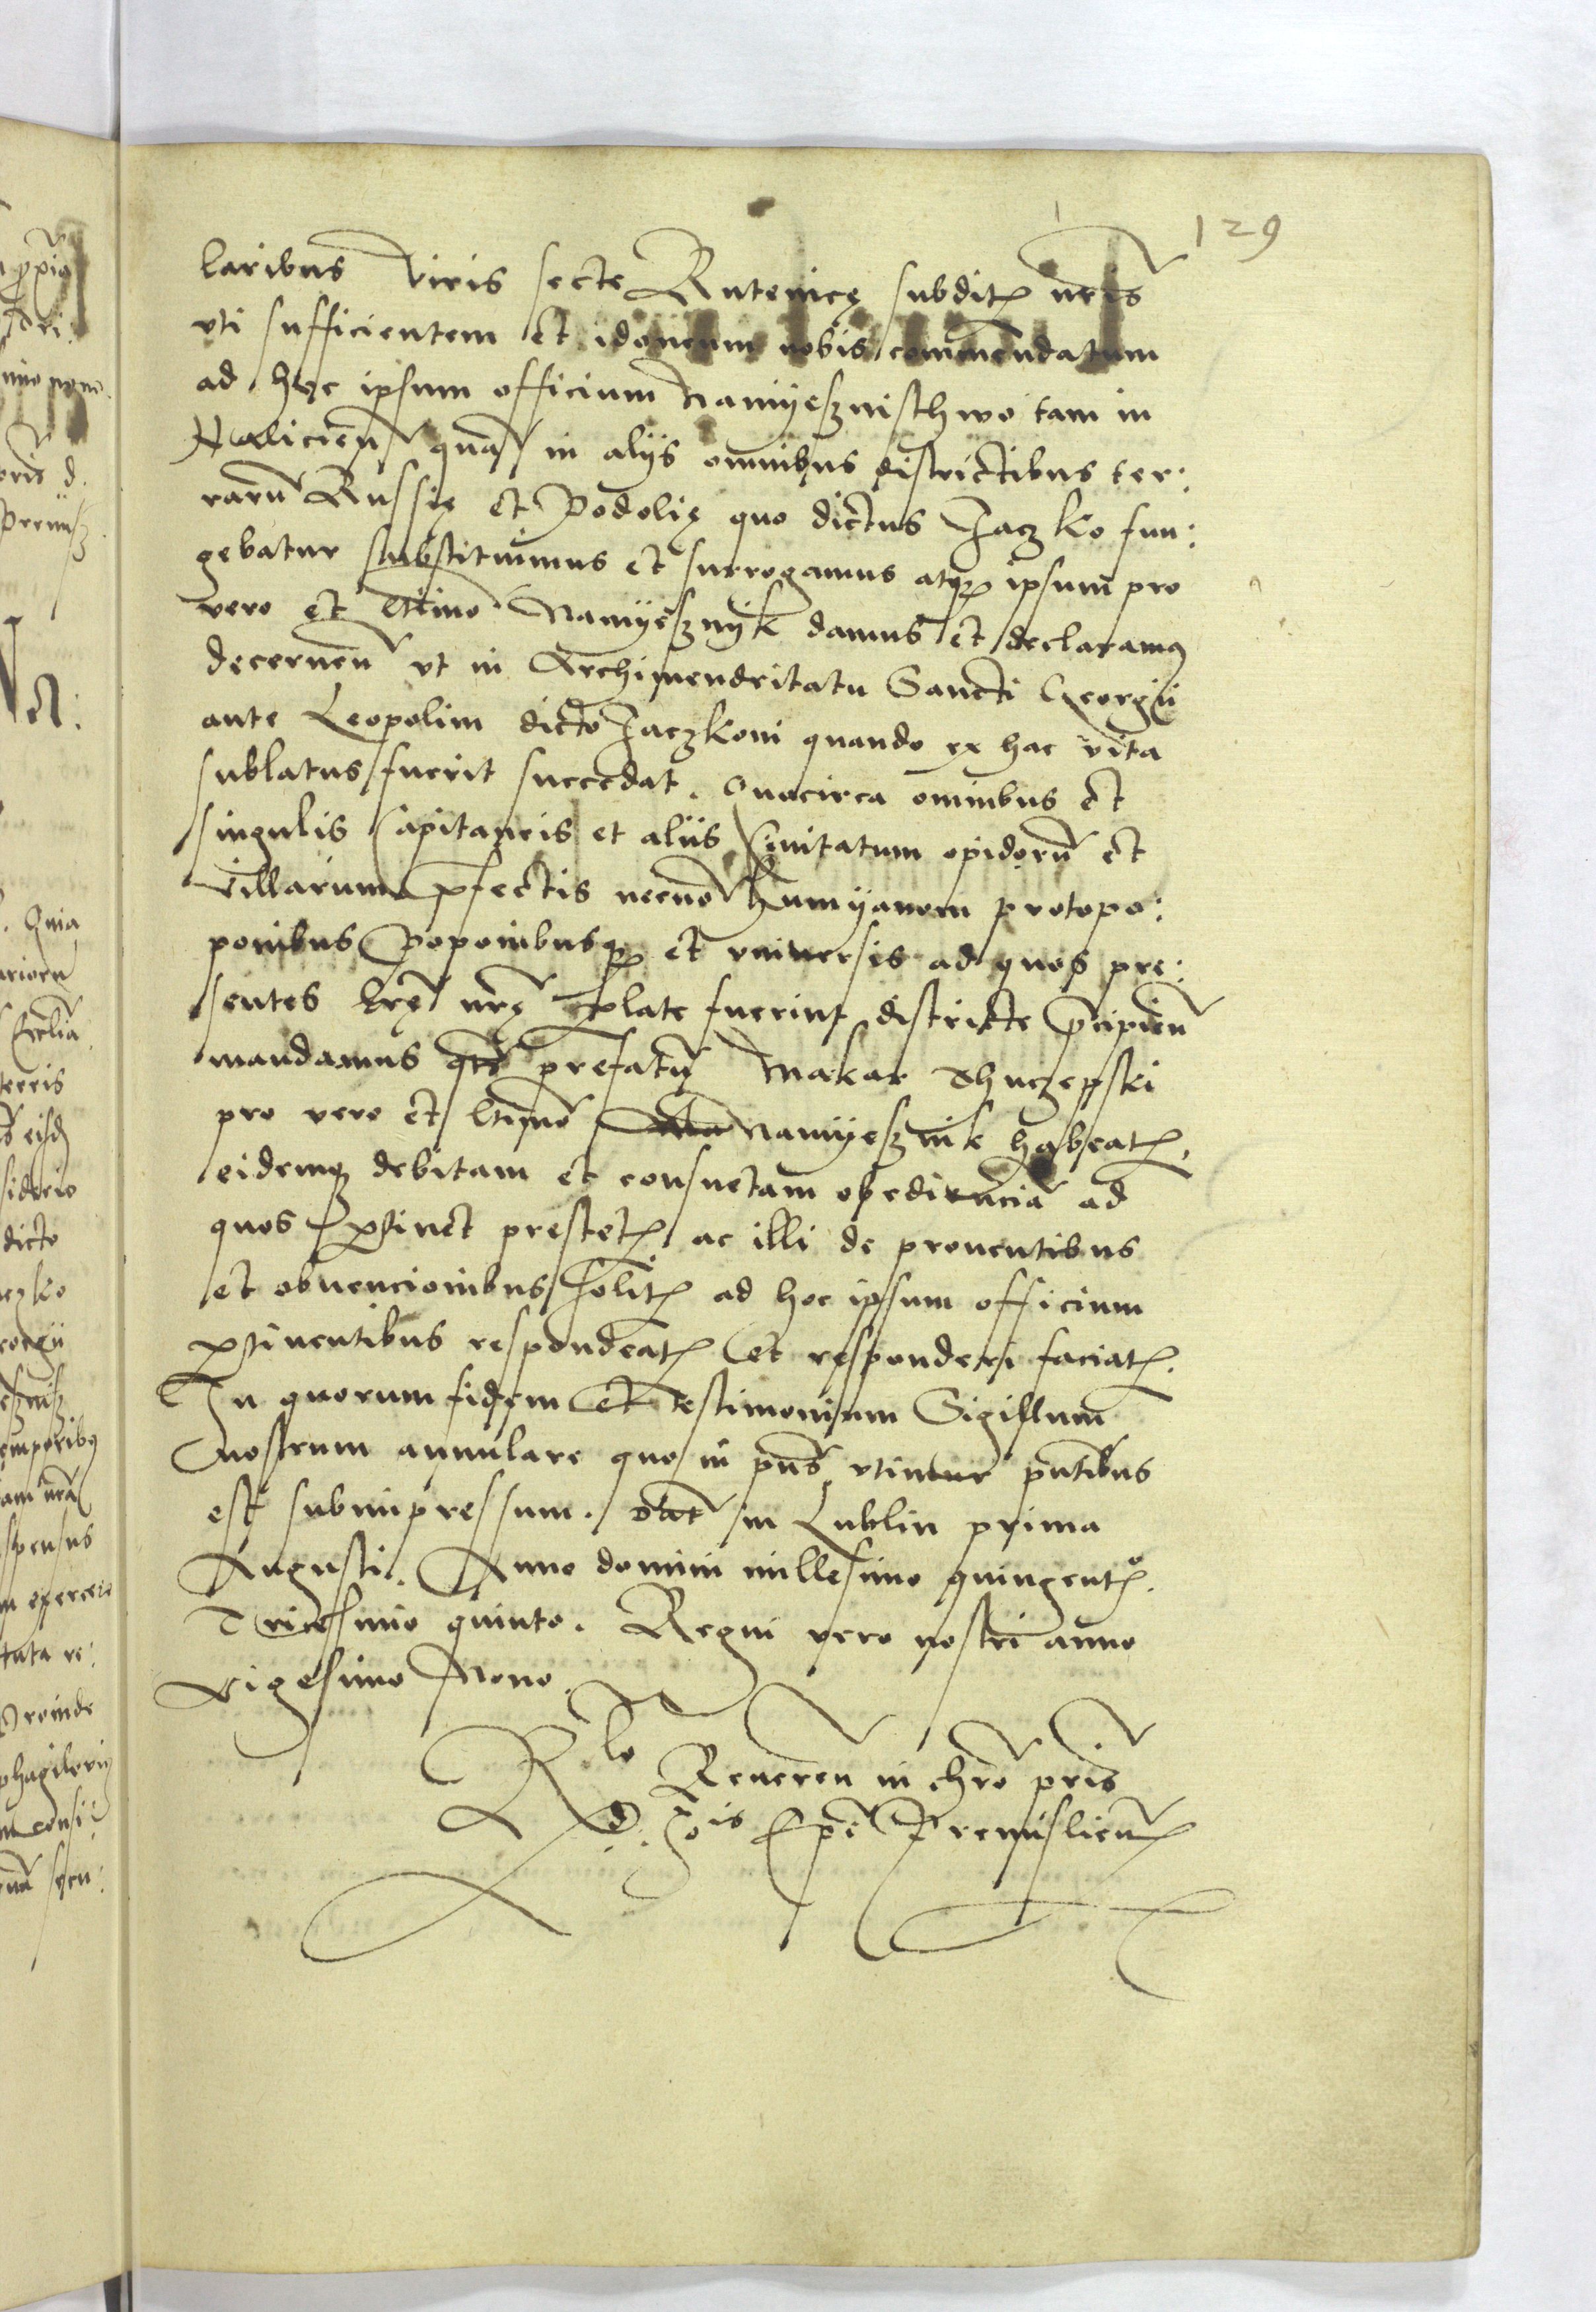 129
laribus viris secte Rutenicę subditꝭ nr̃is
vti sufficientem et idoneum nobis commendatum
ad hoc ipsum officium Namÿesznisthwo tam in
Halicien̄ quā in alÿs omnibus districtibus ter:
rarū Russię et Podolię quo dictus Jaczko fun:
gebatur substituimus et surrogamus atqꝫ ipsum pro
vero et lttimo Namÿesznÿk damus et declaramꝰ
decernen̄ vt in Archimendritatu Sancti Georgÿ
ante Leopolim dicto Jaczkoni quando ex hac vita
sublatus fuerit succedat. Quocirca omnibus et
singulis Capitaneis et aliis Civitatum opidorū et
villarum p̄fectis necnō humÿanom protopo:
ponibus Poponibusqꝫ et vniversis ad quos pre:
sentes lrę̄ nrę̄ plate fuerint districte p̄cipien̄
mandamus qt̄ꝰ prefatū Makar Thuczepski
pro vero et ltimō Namÿesznik habeatꝭ,
eidemqꝫ debitam et consuetam obedienciā ad
quos ꝑtinet prestetꝭ ac illi de proventibus
et obvencionibus solitꝭ ad hoc ipsum officium
ꝑtinentibus respondeatꝭ et responderi faciatꝭ.
In quorum fidem et testimonium Sigillum
nostrum annulare quo in pn̄s vtimur pn̄tibus
est subimpressum. Dat̄ in Lublin prima
Augusti. Anno domini millesimo quingentꝭͦ.
Tricesimo quinto. Regni vero nostri anno
vigesimo Nono.
Rlo Reveren̄ in chrō pr̄is
d. Jois Ep̄i Premislien̄